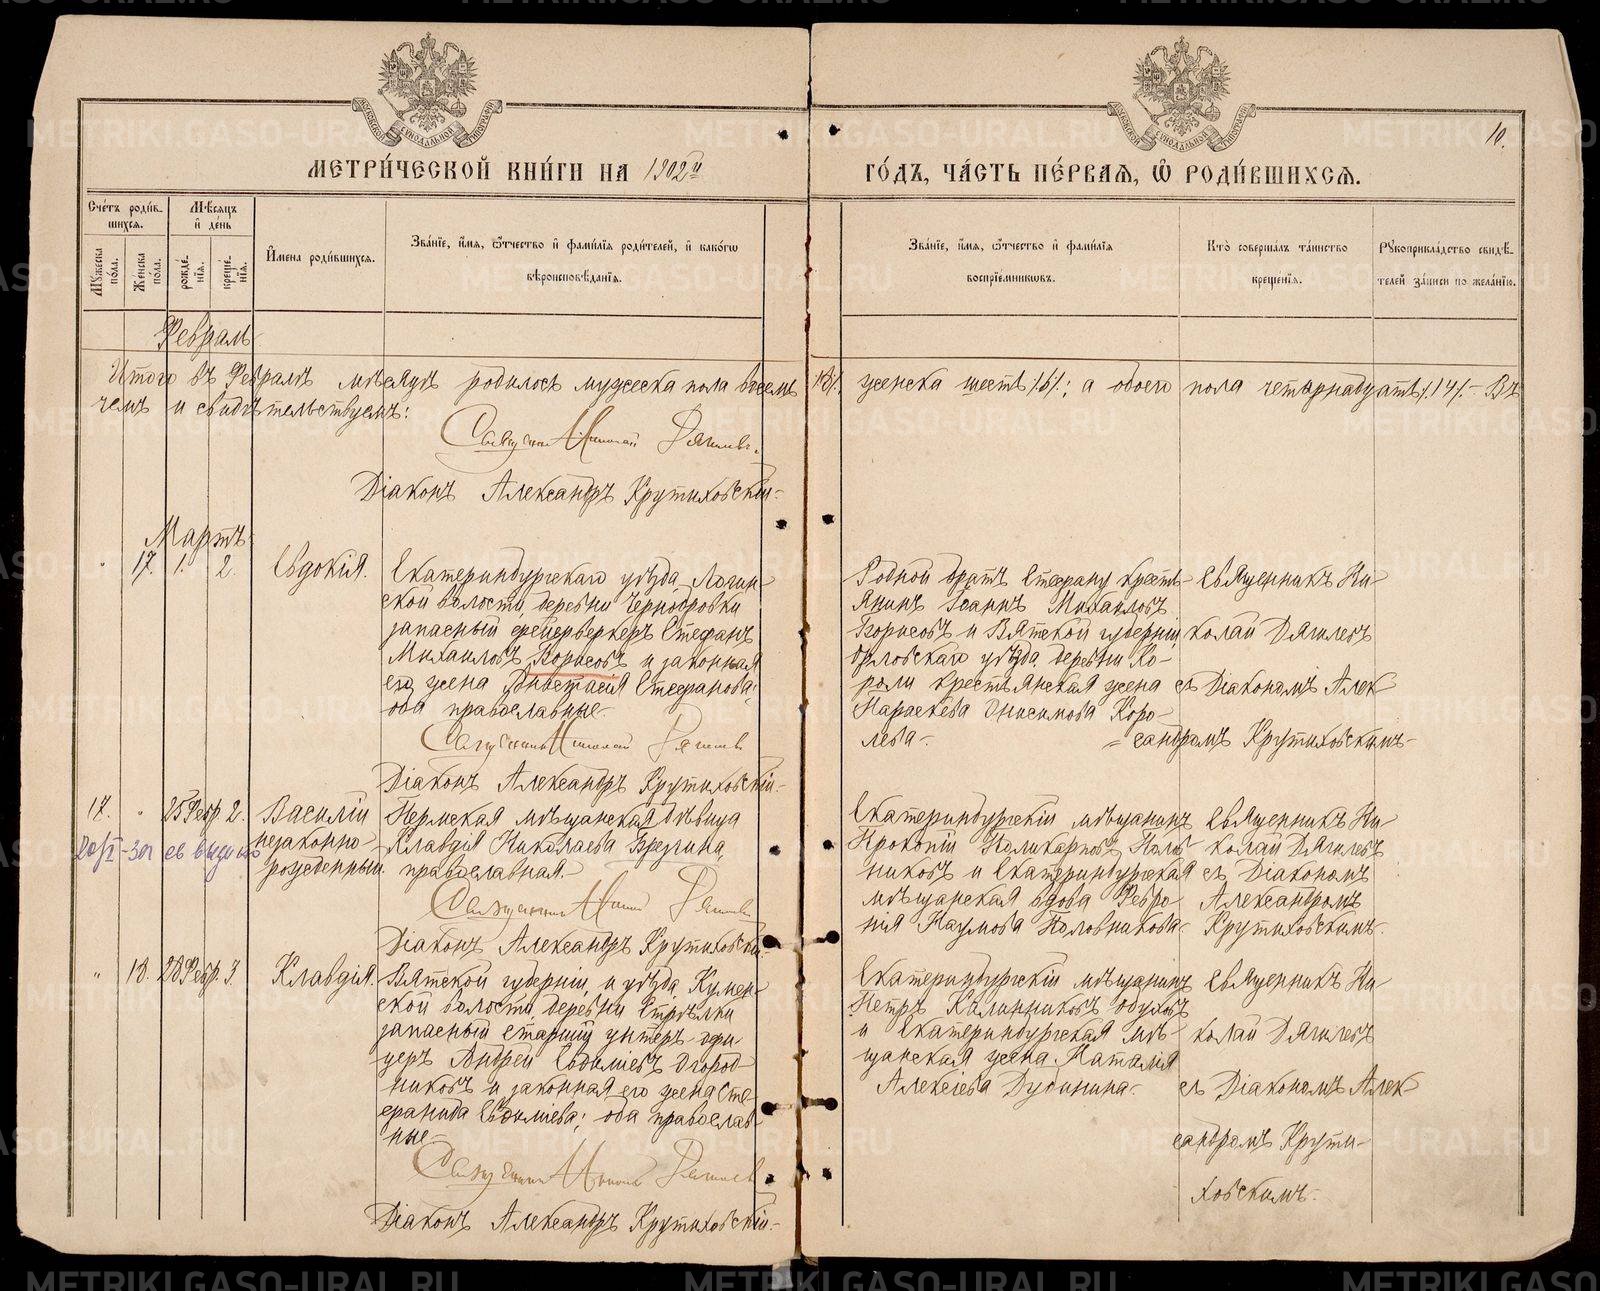 10.
МЕТРИ́ЧЕСКОЙ КНИ́ГИ НА 1902й ГО́ДЪ, ЧА́СТЬ ПЕ́РВАѦ, Ѽ РОДИ́ВШИХСѦ.
Сче́тъ роди́в-
шихсѧ.
Мꙋ́жеска по́ла.
Же́нска по́ла.
Мѣ́сѧцъ и де́нь
рожде́нїѧ.
креще́нїѧ.
И́мена роди́вшихсѧ.
Зва́нїе, и́мѧ, ѻ́тчество и фами́лїѧ роди́телей, и како́гѡ
вѣроисповѣ́данїѧ.
Зва́нїе, и́мѧ, ѻ́тчество и фами́лїѧ
воспрїе́мникѡвъ.
Кто̀ соверша́лъ та́инство
креще́нїѧ.
Рꙋкоприкла́дство свидѣ́-
телей за́писи по жела́нїю.
Февраль
Итого въ Февралѣ мѣсяцѣ родилось мужеска пола восемь /8/. женска шесть /6/; а обоего пола четырнадцать /14/.- Въ
чемъ и свидѣтельствуемъ:
Священникъ Николай Дягилевъ.
Діаконъ Александръ Крутиховскій.-
Мартъ.
" 17. 1. 2.
Евдокія.
Екатеринбургскаго уѣзда, Логин-
ской волости, деревни Чернобровки
запасный фейерверкеръ Стефанъ
Михаиловъ Борисовъ и законная
его жена Анастасія Стефанова;
оба православные.-
Священникъ Николай Дягилевъ
Діаконъ Александръ Крутиховскій.-
Родной братъ Стефану кресть-
янинъ Іоаннъ Михаиловъ
Борисовъ и Вятской губерніи,
Орловскаго уѣзда, деревни Ко-
роли крестьянская жена
Параскева Онисимова Коро-
лева.-
Священникъ Ни-
колай Дягилевъ
съ Діакономъ Алек
=сандромъ Крутиховскимъ.-
17. " 25 Февр. 2.
Василій
незаконно-
рожденный.
20/I - 301 св выдано
Пермская мѣщанская дѣвица
Клавдія Николаева Брезгина,
православная.-
Священникъ Николай Дягилевъ
Діаконъ Александръ Крутиховскій.-
Екатеринбургскій мѣщанинъ
Прокопій Поликарповъ Поло-
никовъ и Екатеринбургская
мѣщанская вдова Февро-
нія Наумова Половникова.-
Священникъ Ни-
колай Дягилевъ
съ Діакономъ
Александромъ
Крутиховскимъ.-
" 18. 28 Февр. 3.
Клавдія.
Вятской губерніи и уѣзда, Кумен-
ской волости, деревни Стрѣлки
запасный старшій унтеръ-офи-
церъ Андрей Евдокіевъ Огород-
никовъ и законная его жена Сте-
фанида Евфиміева; оба православ-
ные.-
Священникъ Николай Дягилевъ
Діаконъ Александръ Крутиховскій.-
Екатеринбургскій мѣщанинъ
Петръ Калинниковъ Обуховъ
и Екатеринбургская мѣ-
щанская жена Наталія
Алексіева Дубинина.-
Священникъ Ни-
колай Дягилевъ
съ Діакономъ Алек
сандромъ Крути-
ховскимъ.-
METRIKI.GASO-URAL.RU